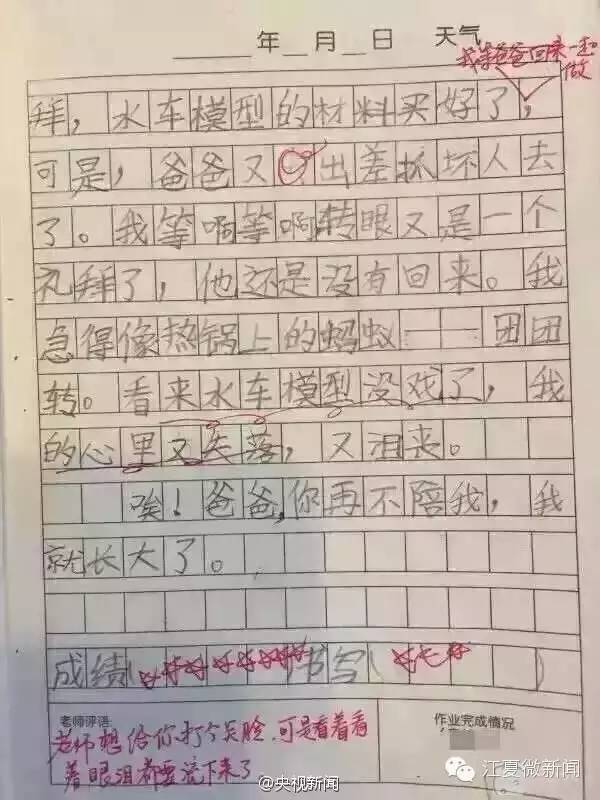 年 月 日 天气
我等爸爸回来一起做
拜,水车模型的材料买好了,
可是,爸爸又出差抓坏人去
了。我等啊等啊转眼又是一个
礼拜了,他还是没有回来。我
急得像热锅上的蚂蚁——团团
转。看来水车模型没戏了,我
的心里又失落,又沮丧。
唉!爸爸,你再不陪我,我
就长大了。
成绩( 书写( )
老师评语:
老师想给你打个笑脸,可是看着看
着眼泪都要流下来了
作业完成情况
@央视新闻
江夏微新闻